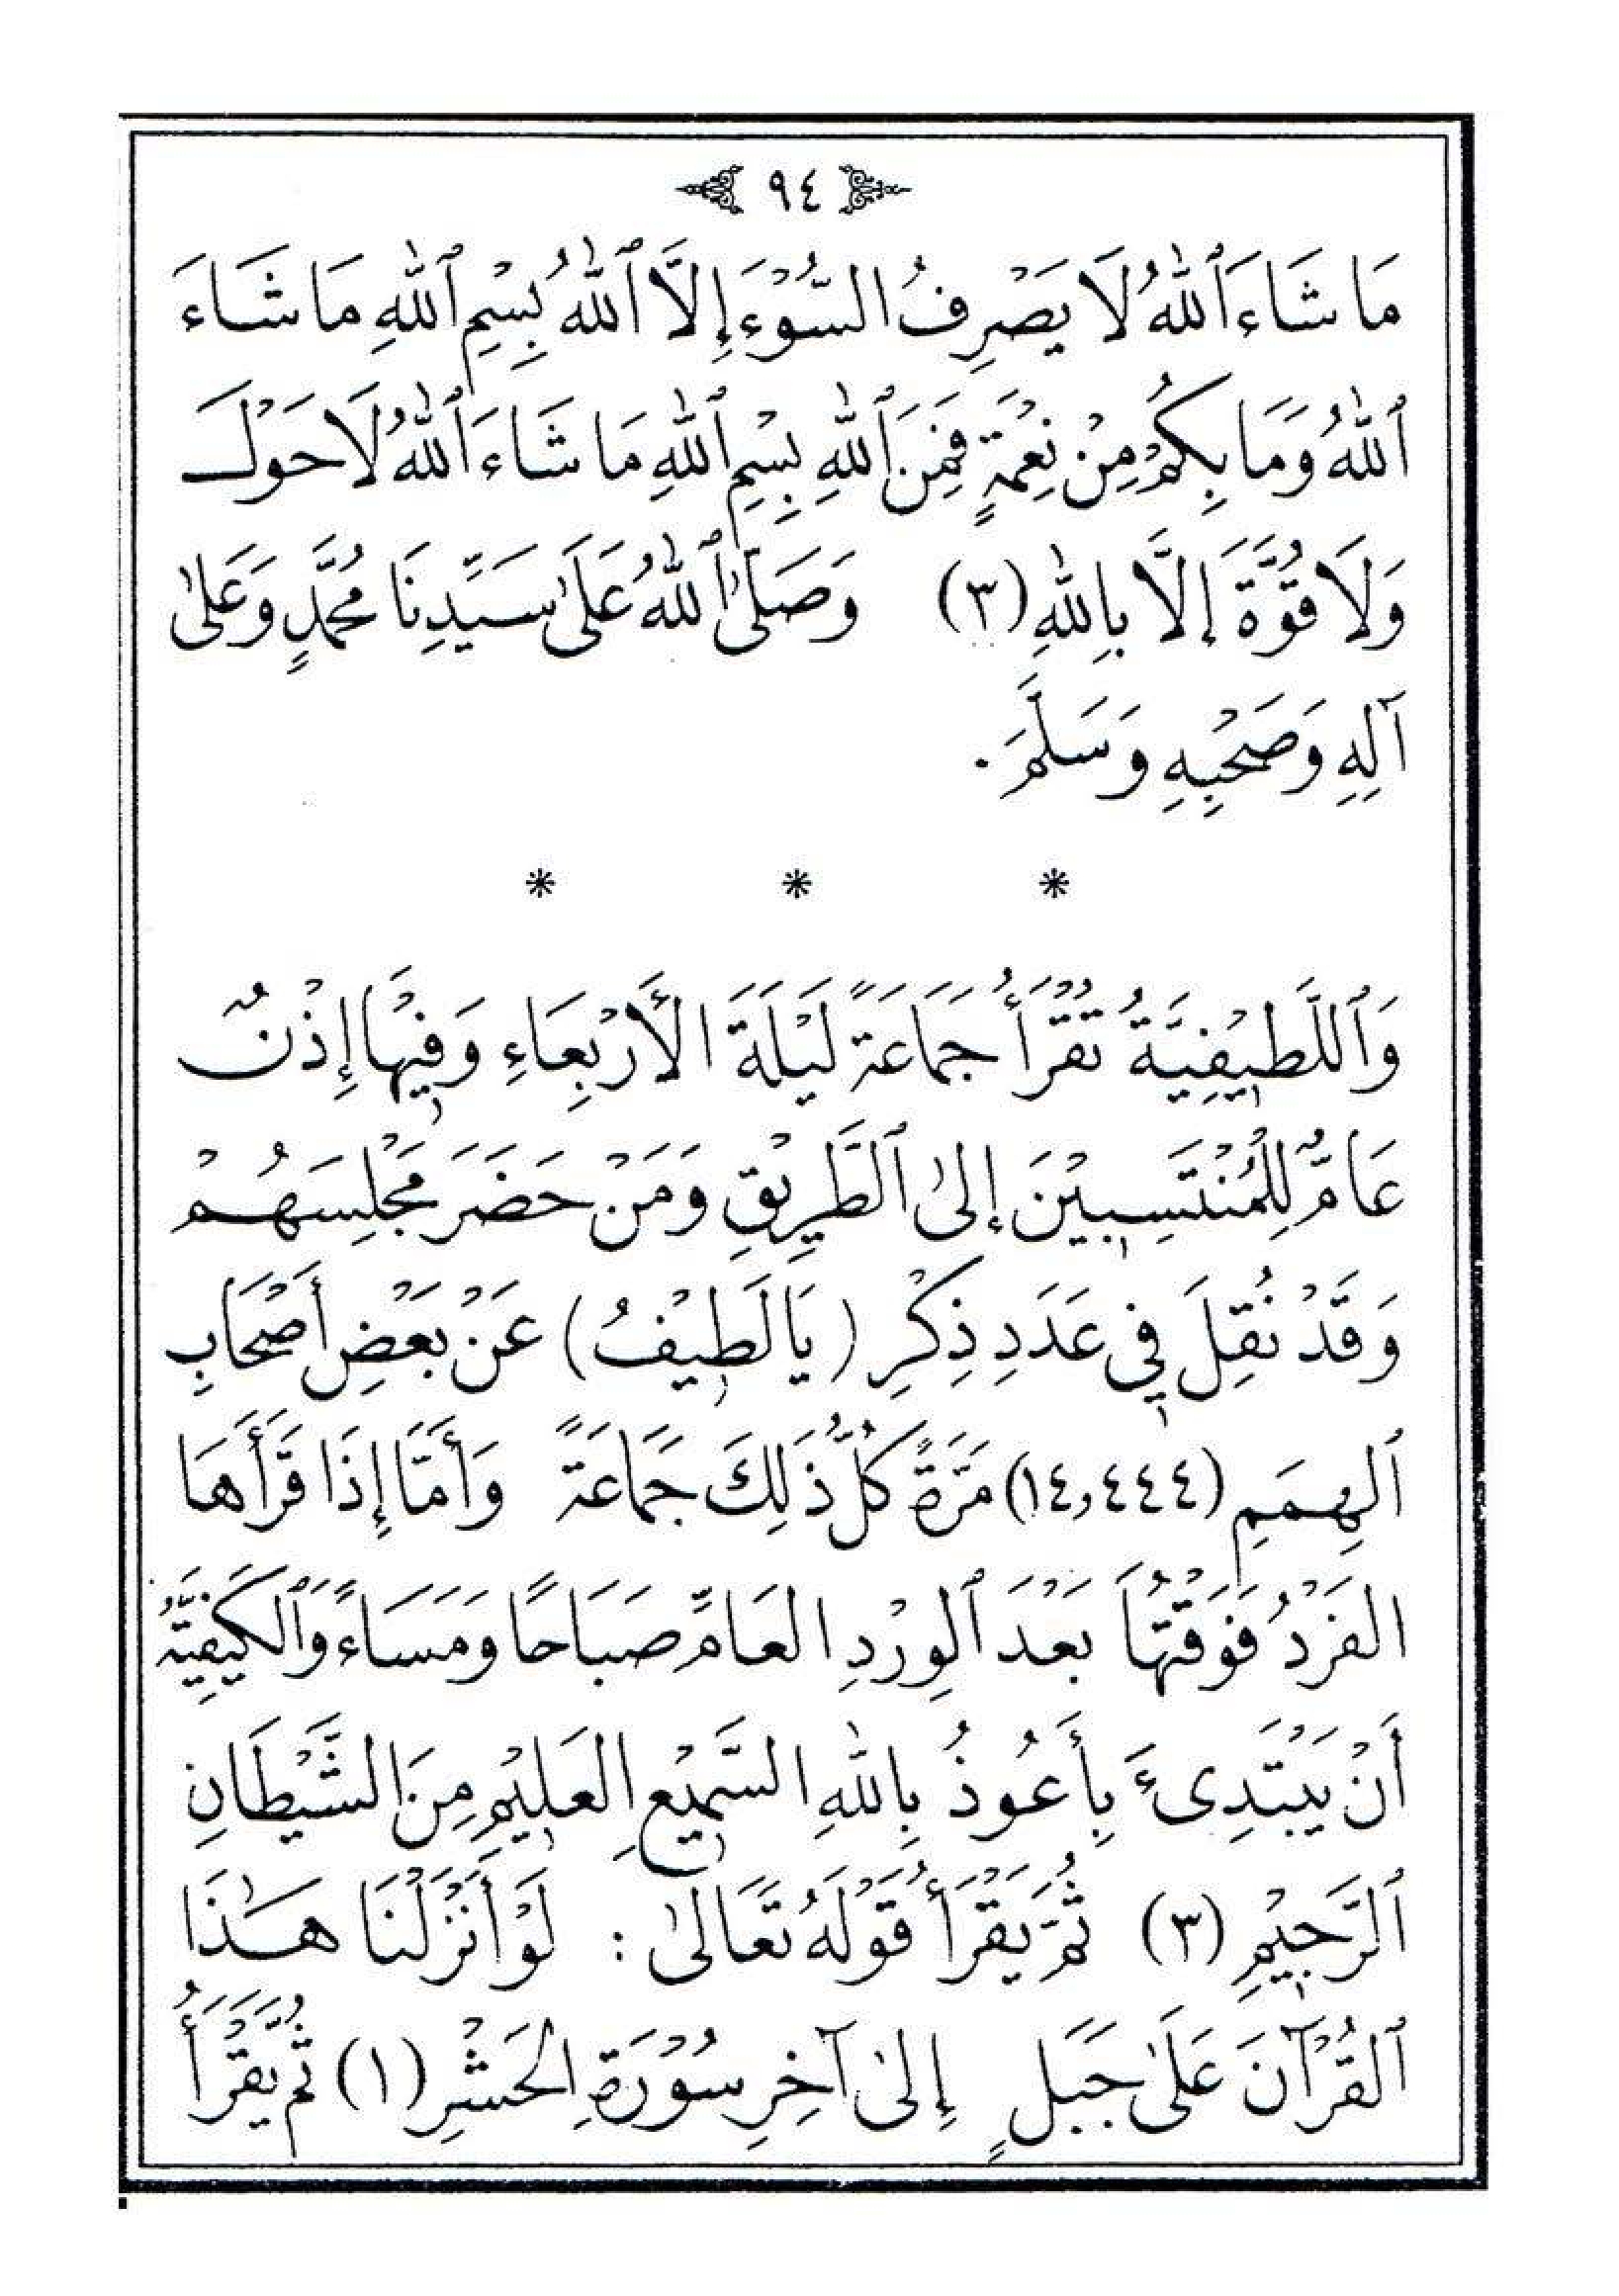 ٩٤
مَا شَاءَ ٱللّٰهُ لَا يَصْرِفُ السُّوْءَ إِلَّا ٱللّٰهُ بِسْمِ ٱللّٰهِ مَا شَاءَ
ٱللّٰهُ وَمَا بِكُمْ مِنْ نِعْمَةٍ فَمِنَ ٱللّٰهِ بِسْمِ ٱللّٰهِ مَا شَاءَ ٱللّٰهُ لَا حَوْلَ
وَلَا قُوَّةَ إِلَّا بِاللّٰهِ (٣) وَصَلَّىٰ ٱللّٰهُ عَلَىٰ سَيِّدِنَا مُحَمَّدٍ وَعَلىٰ
آلِهِ وَصَحْبِهِ وَسَلَّمَ .
* * *
وَٱللَّطِيْفِيَّةُ تُقْرَأُ جَمَاعَةً لَيْلَةَ الْأَرْبِعَاءِ وَفِيْهَا إِذْنٌ
عَامٌّ لِلْمُنْتَسِبِيْنَ إِلىٰ ٱلطَّرِيْقِ وَمَنْ حَضَرَ مَجْلِسَهُمْ
وَقَدْ نُقِلَ فِي عَدَدِ ذِكْرِ (يَا لَطِيْفُ) عَنْ بَعْضِ أَصْحَابِ
ٱلهِمَمِ (١٤,٤٤٤) مَرَّةً كُلُّ ذَلِكَ جَمَاعَةً وَأَمَّا إِذَا قَرَأَهَا
الفَرْدُ فَوَقْتُهَا بَعْدَ ٱلوِرْدِ العَامِّ صَبَاحًا وَمَسَاءً وَٱلكَيْفِيَّةُ
أَنْ يَبْتَدِىءَ بِأَعُوذُ بِاللّٰهِ السَّمِيْعِ العَلِيْمِ مِنَ الشَّيْطَانِ
ٱلرَّجِيْمِ (٣) ثُمَّ يَقْرَأُ قَوْلَهُ تَعَالىٰ : لَوْ أَنْزَلْنَا هَـٰذَا
ٱلقُرْآنَ عَلَىٰ جَبَلٍ إِلىٰ آخِرِ سُوْرَةِ الحَشْرِ (١) ثُمَّ يَقْرَأُ